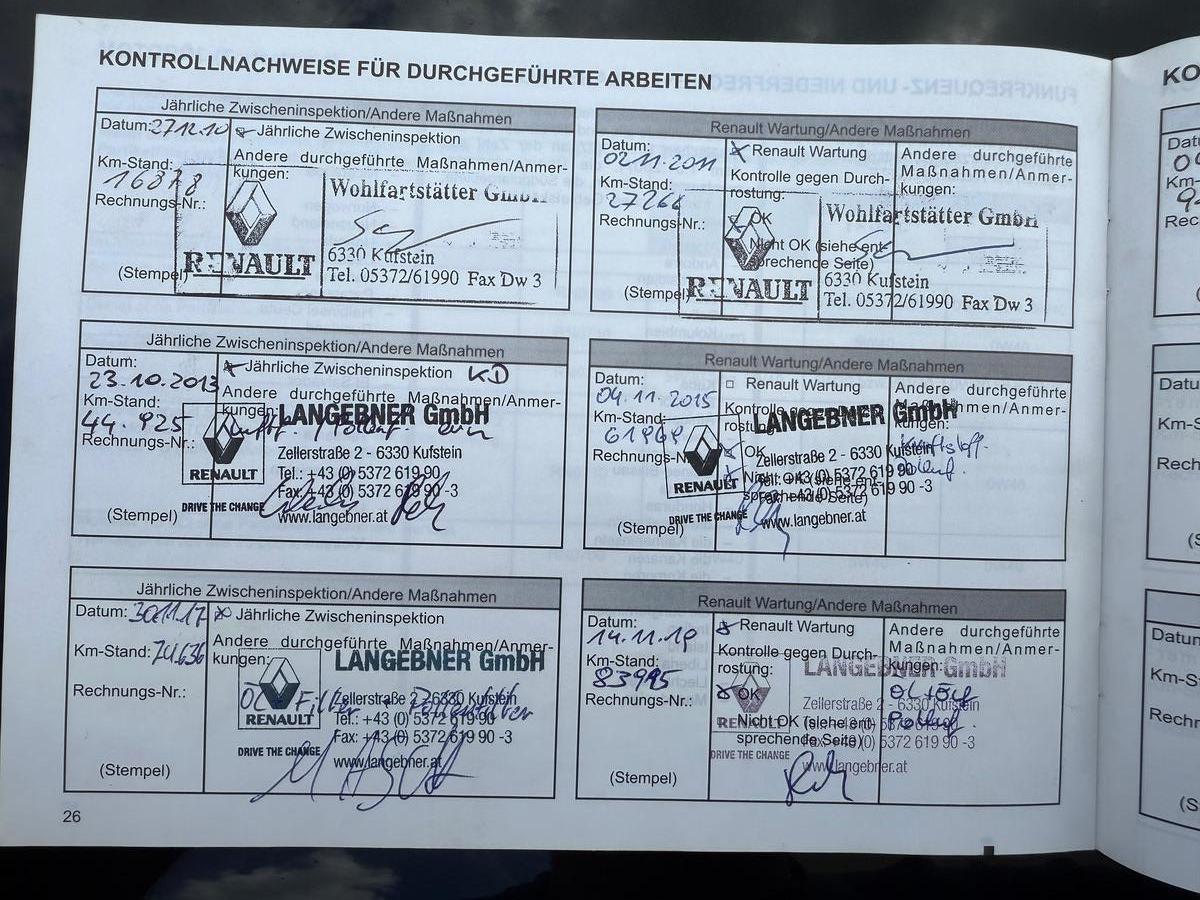 KONTROLLNACHWEISE FÜR DURCHGEFÜHRTE ARBEITEN
Jährliche Zwischeninspektion/Andere Maßnahmen
Datum: 27.12.10
Jährliche Zwischeninspektion
Km-Stand: 16878
Andere durchgeführte Maßnahmen/Anmer-
kungen:
Rechnungs-Nr.:
(Stempel)
Wohlfartstätter GmbH
RENAULT
6330 Kufstein
Tel. 05372/61990 Fax Dw 3
Renault Wartung/Andere Maßnahmen
Datum: 02.11.2011
Renault Wartung
Km-Stand:
Kontrolle gegen Durch-
rostung:
OK
Nicht OK (siehe ent-
sprechende Seite)
Andere durchgeführte
Maßnahmen/Anmer-
kungen:
Rechnungs-Nr.:
(Stempel)
Wohlfartstätter GmbH
RENAULT
6330 Kufstein
Tel. 05372/61990 Fax Dw 3
Jährliche Zwischeninspektion/Andere Maßnahmen
Datum: 23.10.2013
Jährliche Zwischeninspektion KD
Km-Stand: 44.925
Andere durchgeführte Maßnahmen/Anmer-
kungen:
Rechnungs-Nr.:
(Stempel)
LANGEBNER GmbH
RENAULT
DRIVE THE CHANGE
Zellerstraße 2 - 6330 Kufstein
Tel.: +43 (0) 5372 619 90
Fax: +43 (0) 5372 619 90 -3
www.langebner.at
Renault Wartung/Andere Maßnahmen
Datum: 04.11.2015
Renault Wartung
Km-Stand:
OK
Andere durchgeführte
Maßnahmen/Anmer-
kungen:
Rechnungs-Nr.:
(Stempel)
LANGEBNER GmbH
RENAULT
DRIVE THE CHANGE
Zellerstraße 2 - 6330 Kufstein
Tel.: +43 (0) 5372 619 90
Fax: +43 (0) 5372 619 90 -3
www.langebner.at
Jährliche Zwischeninspektion/Andere Maßnahmen
Datum: 30.11.17
Jährliche Zwischeninspektion
Km-Stand:
Andere durchgeführte Maßnahmen/Anmer-
kungen:
Rechnungs-Nr.:
(Stempel)
LANGEBNER GmbH
RENAULT
DRIVE THE CHANGE
Zellerstraße 2 - 6330 Kufstein
Tel.: +43 (0) 5372 619 90
Fax: +43 (0) 5372 619 90 -3
www.langebner.at
Renault Wartung/Andere Maßnahmen
Datum: 14.11.19
Renault Wartung
Km-Stand: 83995
Kontrolle gegen Durch-
rostung:
OK
Nicht OK (siehe ent-
sprechende Seite)
Andere durchgeführte
Maßnahmen/Anmer-
kungen:
Rechnungs-Nr.:
(Stempel)
LANGEBNER GmbH
RENAULT
DRIVE THE CHANGE
Zellerstraße 2 - 6330 Kufstein
Fax: +43 (0) 5372 619 90 -3
www.langebner.at
26